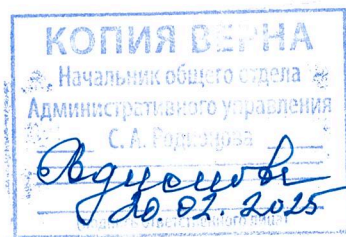 КОПИЯ ВЕРНА
Начальник общего отдела
Административного управления
С. А. Родионова
Родионова
20.02.2025